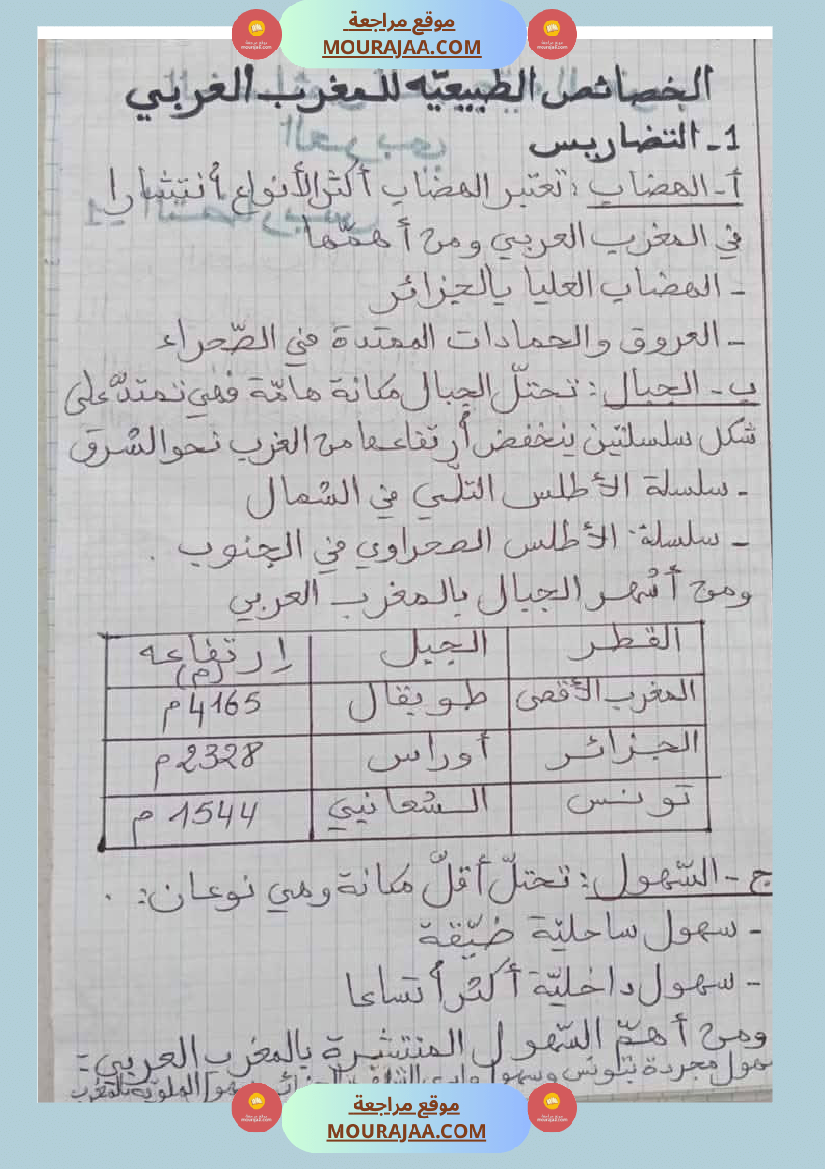 موقع مراجعة
MOURAJAA.COM
الخصائص الطبيعيّه للمغرب الغربي
1 - التضاريس
أ - الهضاب : تعتبر الهضاب أكثر الأنواع أنتشارا
في المغرب العربي ومن أهمّها
- الهضاب العليا بالجزائر
- العروق والحمادات الممتدة في الصّحراء
ب - الجبال : تحتلّ الجبال مكانة هامّة فهي تمتدّ على
شكل سلسلتين ينخفض أرتفاعها من الغرب نحو الشرق
- سلسلة الأطلس التلّي في الشمال
- سلسلة الأطلس الصحراوي في الجنوب .
ومن أشهر الجبال بالمغرب العربي
القطر الجبل إرتفاعه (م)
المغرب الأقصى طوبقال 4165م
الجزائر أوراس 2328م
تونس الشعانبي 1544 م
ج - السّهول : تحتلّ أقلّ مكانة وهي نوعان : .
- سهول ساحليّة ضيّقة
- سهول داخليّة أكثر أتساعا
ومن أهمّ السّهول المنتشرة بالمغرب العربي :
سهول مجردة بتونس وسهول وادي الملوية بالمغرب
موقع مراجعة
MOURAJAA.COM